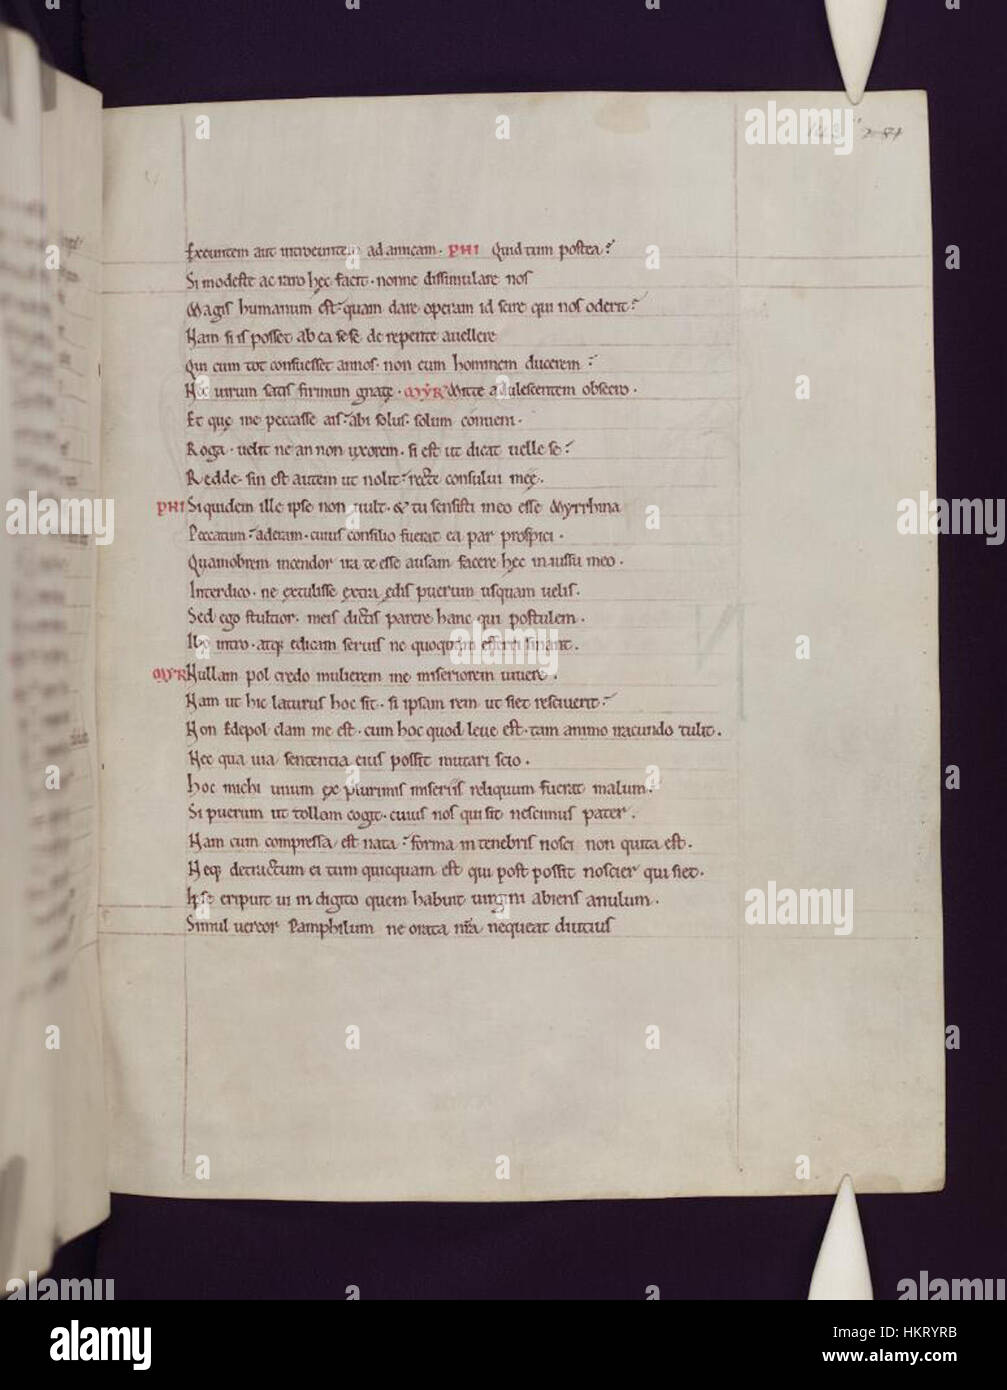 Exeuntem aut introeuntem ad amicam. PHI Quid tum postea?
Si modeste ac raro hęc facit. nonne dissimulare nos
Magis humanum est. quam dare operam id scire qui nos oderit?
Nam si is posset ab ea sese de repente auellere
Qui cum tot consuesset annos. non eum hominem ducerem?
Nec uirum satis firmum gnatę. MYR Mitte adulescentem obsecro.
Et quę me peccasse ais. abi solus. solum conueni.
Roga. uelit ne an non uxorem. si est ut dicat uelle se?
Redde. sin est autem ut nolit. recte consului meę.
PHI Siquidem ille ipse non uult. & tu sensisti in eo esse Myrrhina
Peccatum. aderam. cuius consilio fuerat ea par prospici.
Quamobrem incendor ira te esse ausam facere hęc iniussu meo.
Interdico. ne extulisse extra ędis puerum usquam uelis.
Sed ego stultior. meis dictis parere hanc qui postulem.
Ibo intro. atq; edicam seruis ne quoquam efferri sinant.
MYR Nullam pol credo mulierem me miseriorem uiuere.
Nam ut hic laturus hoc sit. si ipsam rem ut siet resciuerit?
Non Edepol clam me est. cum hoc quod leue est. tam animo iracundo tulit.
Nec qua uia sententia eius possit mutari scio.
Hoc michi unum ex plurimis miseriis reliquum fuerat malum.
Si puerum ut tollam cogit. cuius nos qui sit nescimus pater.
Nam cum compressa est nata. forma in tenebris nosci non quita est.
Neq; detractum ei tum quicquam est qui post possit noscier qui siet.
Ipse eripuit ui in digito quem habuit uirgini abiens anulum.
Simul uereor Pamphilum ne orata nr̄a nequeat diutius
143
alamy
Image ID: HKRYRB
www.alamy.com